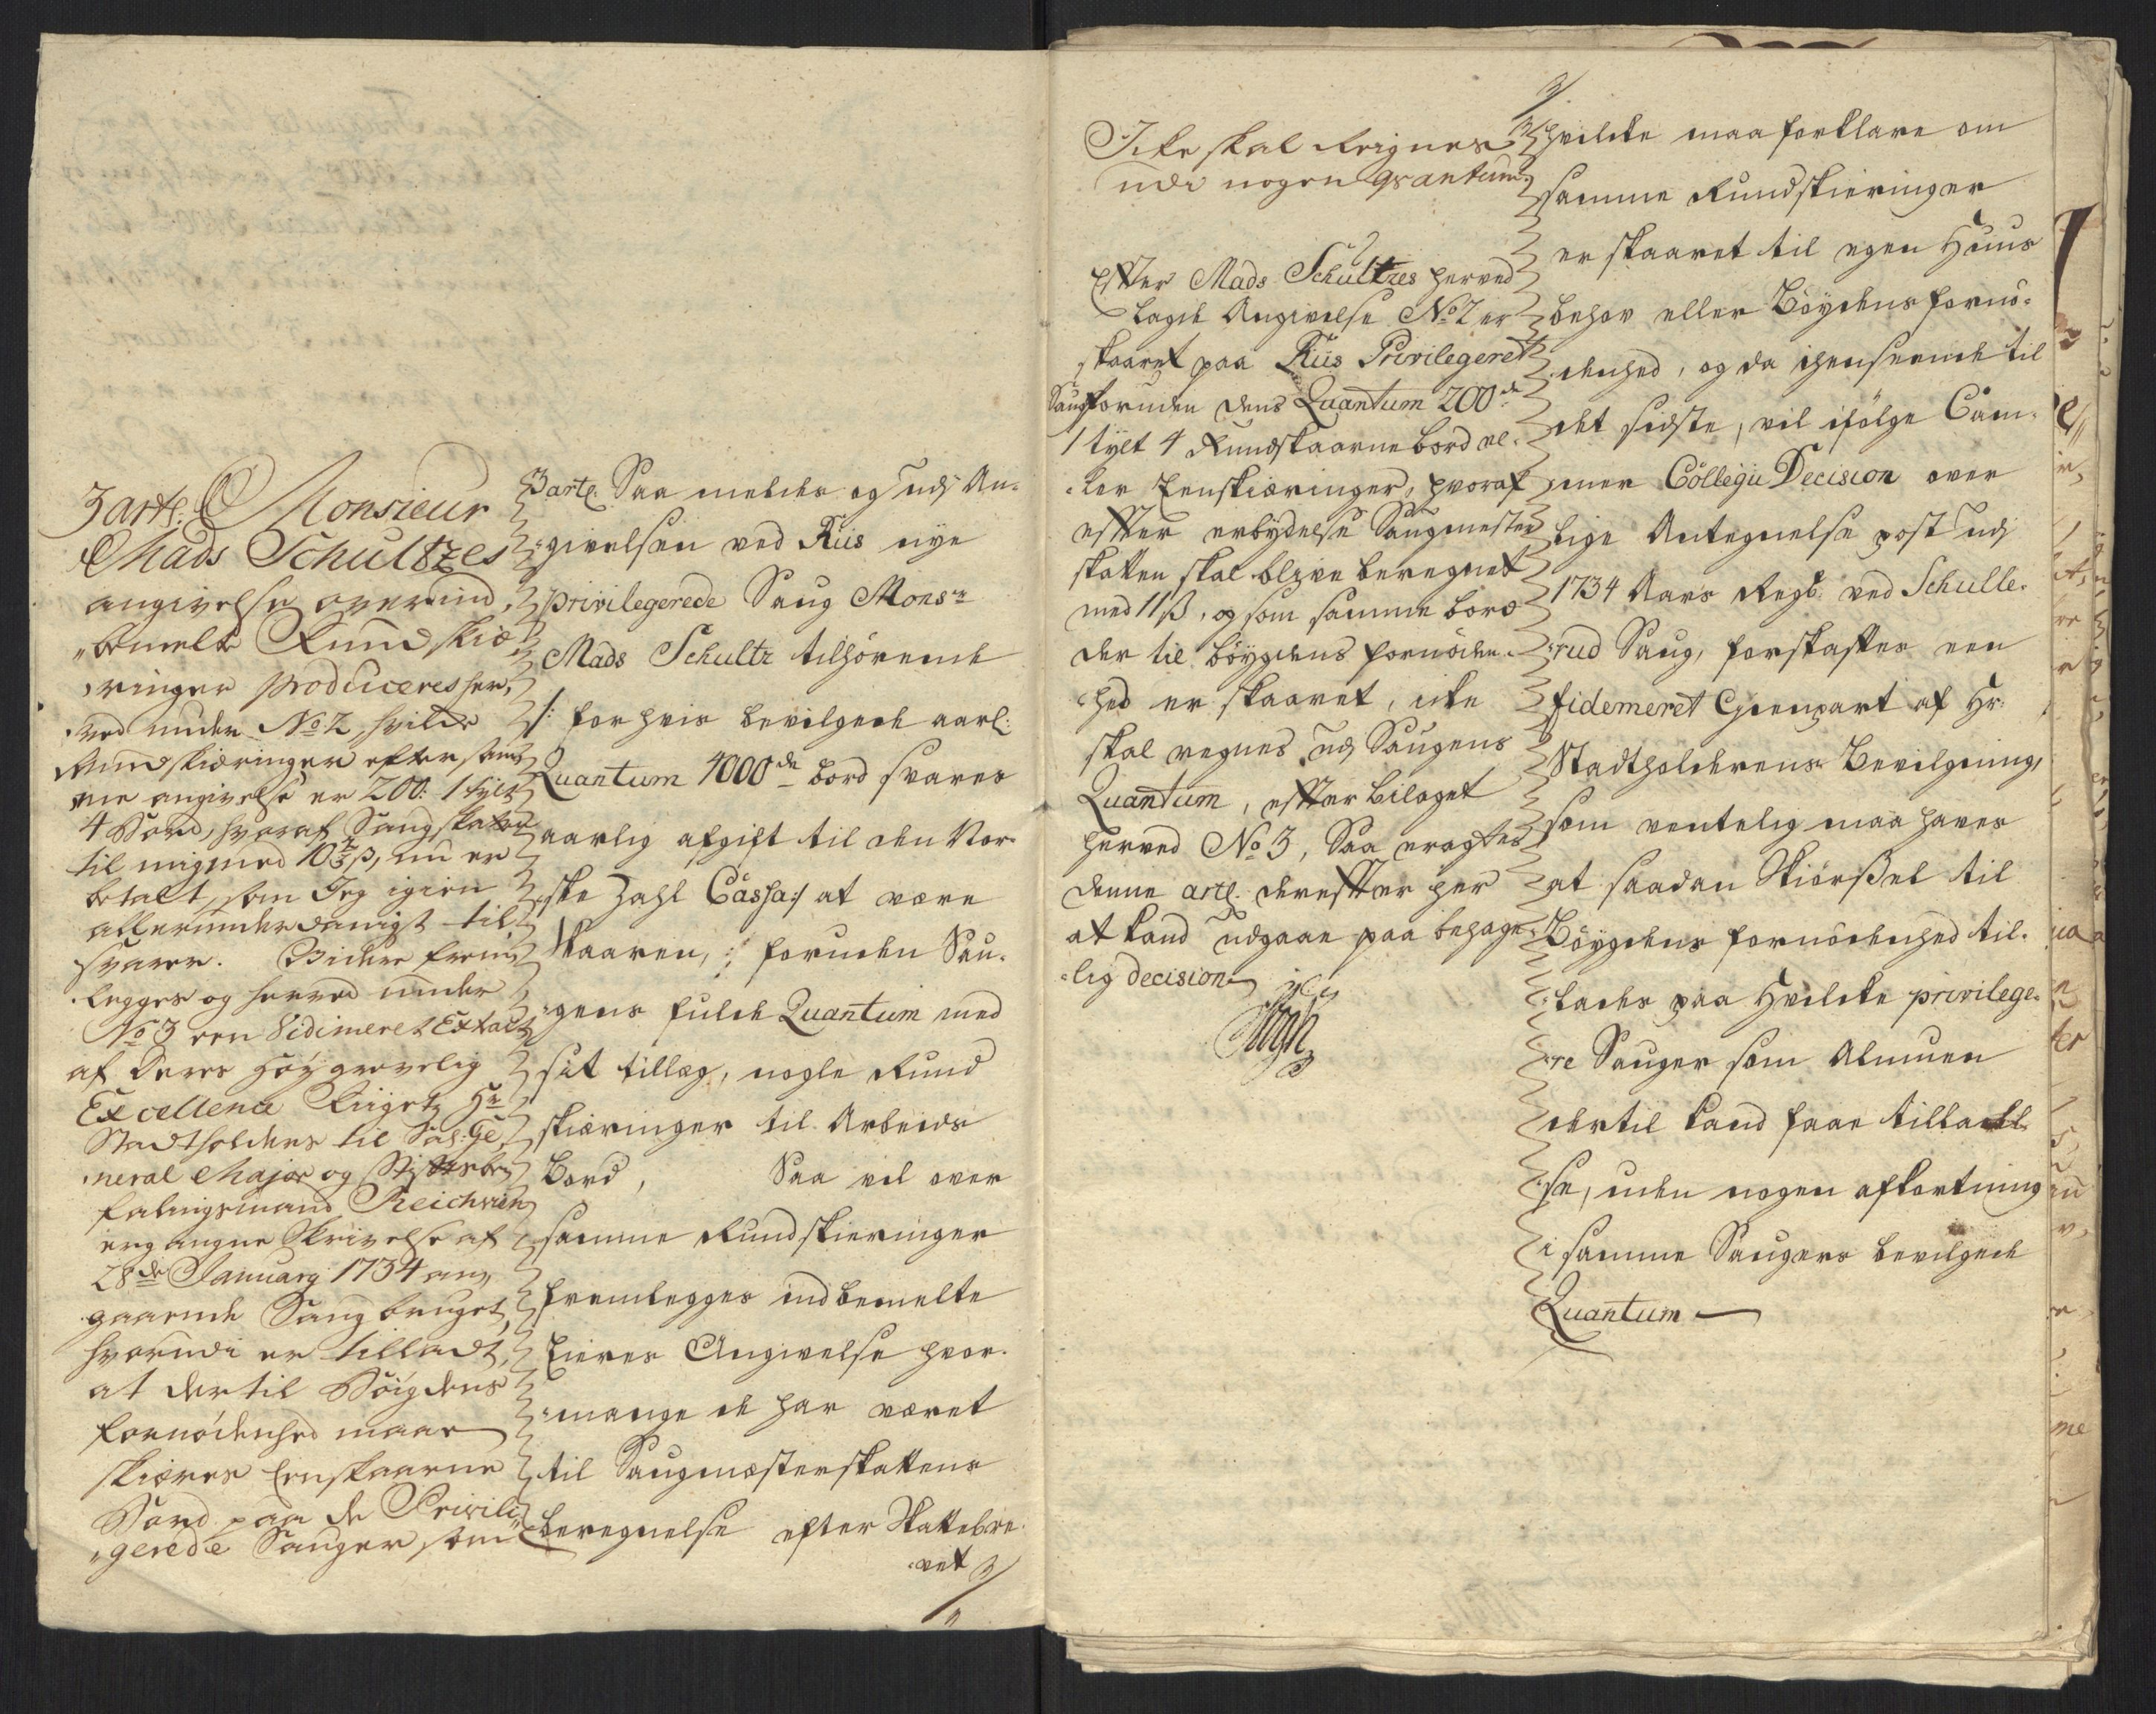 3 artl: Monsieur
Mads Schultzes
angivelse over ind,
„bemelte Rundskiæ-
„ringer produceres her,
„ved under No 2, hvilke
Rundskiæringer efter sam
me angivelse er 200: 1 tylt
4 Bord, hvoraf Saugskatten
til mig med 10⅔ ß, nu er
betalt, som Jeg igien
allerunderdanigst til,
svarer. Videre frem,
„legges og herved under
No 3 een Vidimeret Extract
af Deres Høÿ grevelig
Excellence Riigetz Hr
Stadtholders til Sal: Ge,
„neral Major og Stiftsbe,
falingsmand Reichwein
ergangne Skrivelse af
28de January 1734 an,
gaaende Saugbruget,
hvorudi er tilladt,
at dertil Bøigdens
fornødenhed maae
skiæres Eenskaarne
Bord paa de Privili,
„gerede Sauger som
3 artl. Saa meldes og udj An-
givelsen ved Riis nye
privilegerede Saug Monsr
Mads Schultz tilhørende
/: for hvis bevilgede aarl:
Quantum 4000de bord svares
aarlig afgift til den Nor-
ske Zahl Cassa :/ at være
skaaren, foruden Sau-
gens fulde Quantum med
sit tillæg, nogle Rund
skiæringer til Arbeids
Bord, Saa vel over
samme Rundskieringer
fremlegges indbemelte
Eieres Angivelse hvor-
mange de har været
til Saugmæsterskattens
beregnelse efter Skattebre-
vet
Icke skal Reignes
udi nogen qvantum.
Efter Mads Schultzes herved
lagde Angivelse No 2 er
skaaret paa Riis Privilegeret
Saug foruden dens Quantum 200de
1 tylt 4 Rundskaarne bord el-
ler Eenskiæringer, hvoraf
efter erbydelse Saugmester
skatten skal blive beregnet
med 11 ß, og som samme bord
der til bøygdens fornøden-
hed er skaaret, icke
skal regnes udj Saugens
Quantum, efter bilaget
herved No 3, Saa eragtes
denne artl. derefter her
at kand udgaae paa behage-
lig decision
hvilcke maa forklare om
samme Rundskieringer
er skaaret til egen Huus
behov eller Bøygdens fornø-
denhed, og da i henseende til
det sidste, vil ifølge Cam-
mer Collegii Decision over
lige Antegnelse post udj
1734 Aars Regsk. ved Schulle-
rud Saug, forskaffes een
fidemeret Gienpart af Hr:
Stadtholderens Bevilgning,
som ventelig maa haves
at saadan Skiørßel til
Bøygdens fornødenhed til-
lades paa Hvilcke privilege-
re Sauger som Almuen
dertil kand faae tilladel-
se, uden nogen afkortning
i samme Saugers bevilgede
Quantum